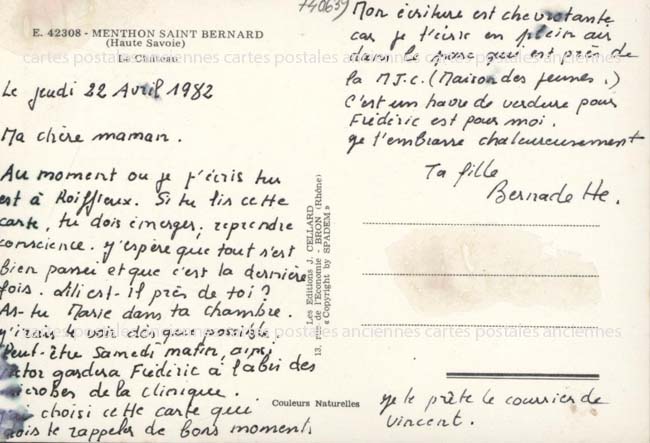 740639
E. 42308 - MENTHON SAINT BERNARD
(Haute Savoie)
Le Château
Le jeudi 22 Avril 1982
Ma chère maman.
Au moment ou je t'écris tu
est à Roiffieux. Si tu lis cette
carte, tu dois émerger, reprendre
conscience. J'espère que tout s'est
bien passé et que c'est la dernière
fois. est-il près de toi ?
As-tu Marie dans ta chambre.
J'irais te voir dès que possible.
Peut-être Samedi matin, ainsi
gardera Frédéric à l'abri des
microbes de la clinique.
J'ai choisi cette carte que
dois te rappeler de bons moments
Mon écriture est chevrotante
car je t'écris en plein air
dans le parc qui est près de
la M.J.C. (Maison des jeunes.)
C'est un havre de verdure pour
Frédéric est pour moi.
Je t'embrasse chaleureusement
Ta fille
Bernadette.
Je te prête le courrier de
Vincent.
Les Editions J. CELLARD
13, rue de l'Economie - BRON (Rhône)
« Copyright by SPADEM »
Couleurs Naturelles
cartes postales anciennes cartes postales anciennes cartes postales anciennes
cartes postales anciennes cartes postales anciennes cartes postales anciennes